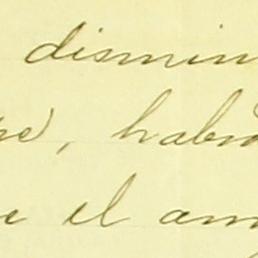 dismin
re, habr
e el am